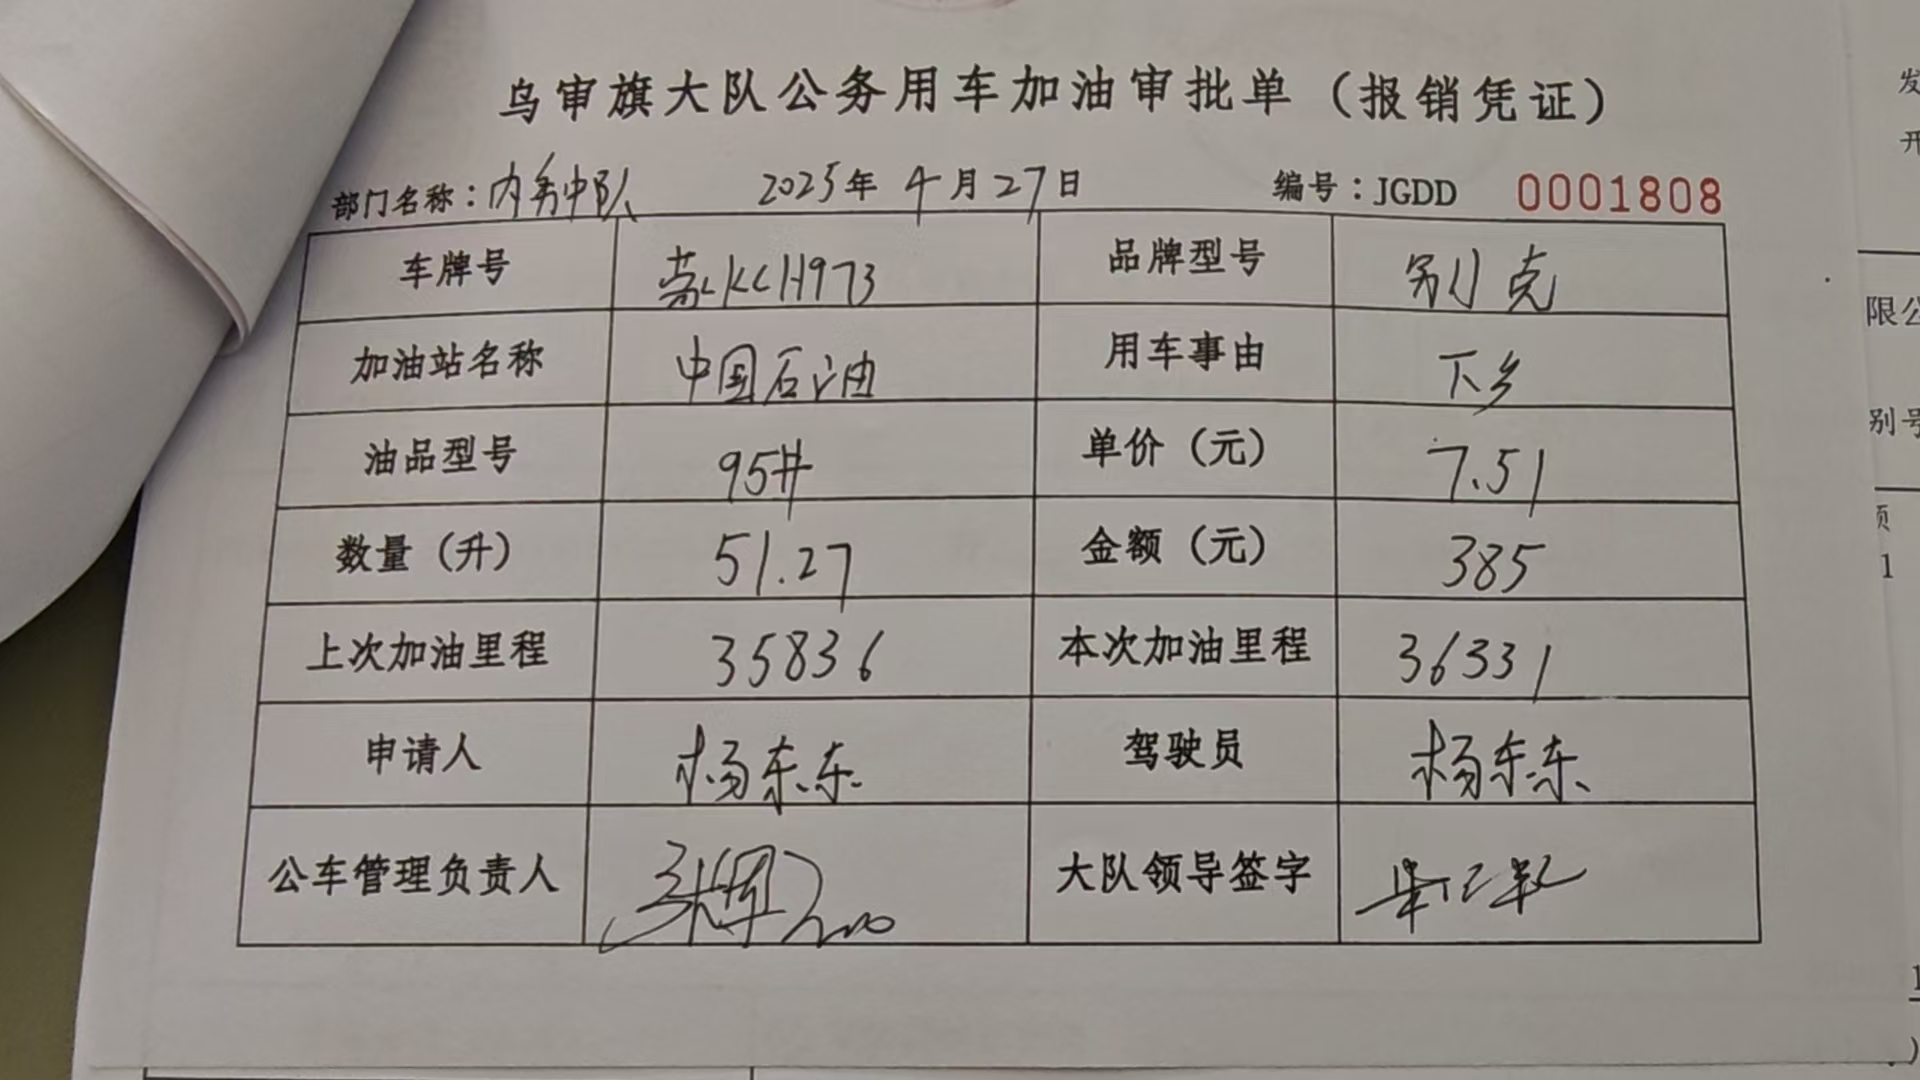 乌审旗大队公务用车加油审批单（报销凭证）
部门名称：内务中队 2025年 4月27日 编号：JGDD 0001808
车牌号 蒙KCH973 品牌型号 别克
加油站名称 中国石油 用车事由 下乡
油品型号 95# 单价（元） 7.51
数量（升） 51.27 金额（元） 385
上次加油里程 35836 本次加油里程 36331
申请人 杨东东 驾驶员 杨东东
公车管理负责人 大队领导签字
发
开
限公
别号
1